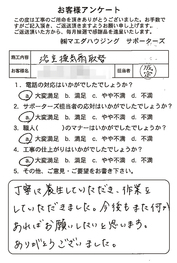 お客様アンケート
この度は工事のご用命を頂きありがとうございました。お手数で
すがご記入頂き、ご返送頂きますようお願い申し上げます。
ご返送頂いた方から、毎月抽選で感謝品を進呈いたします。
㈱マエダハウジング サポーターズ
工事名
お客様名
担当者
1. 電話の対応はいかがでしたでしょうか?
a 大変満足 b. 満足 c. やや不満 d. 不満
2. サポーターズ担当者の応対はいかがでしたでしょうか?
a 大変満足 b. 満足 c. やや不満 d. 不満
3. 職人( )のマナーはいかがでしたでしょうか?
a 大変満足 b. 満足 c. やや不満 d. 不満
4. 工事の仕上がりはいかがでしたでしょうか?
a 大変満足 b. 満足 c. やや不満 d. 不満
5. その他、ご意見・ご要望をお書き下さい。
丁寧に養生していただき、作業を
していただきました。今後もまた何か
あればお願いしたいと思います。
ありがとうございました。